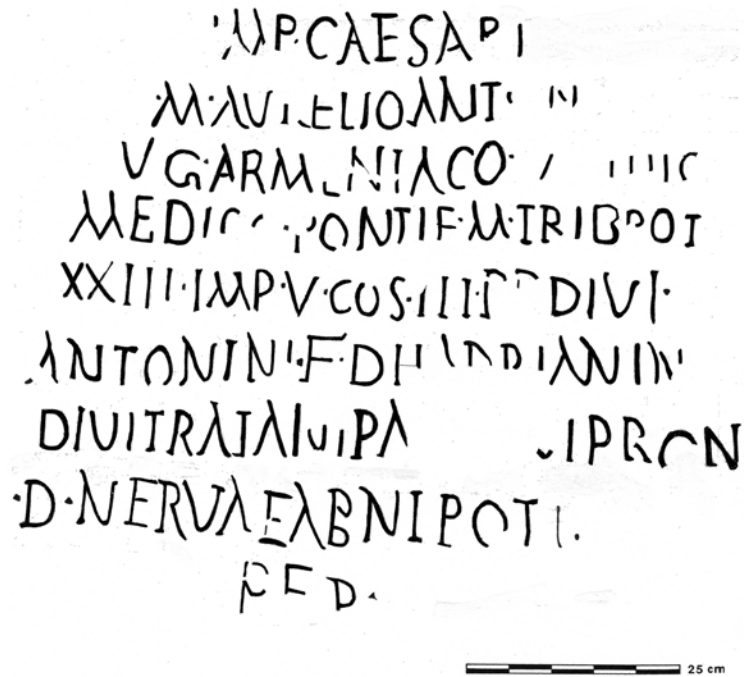 IMP·CAESARI
·M·AVRELIO ANT
VG·ARMENIACO·
MEDIC PONTIF·M·TRIB POT
XXIII·IMP·V·COS·III·P P DIVI·
ANTONINI·F·DI HADRIANI N
DIVI TRAIANI PA I PRON
·D·NERVAE ABNIPOTI
25 cm